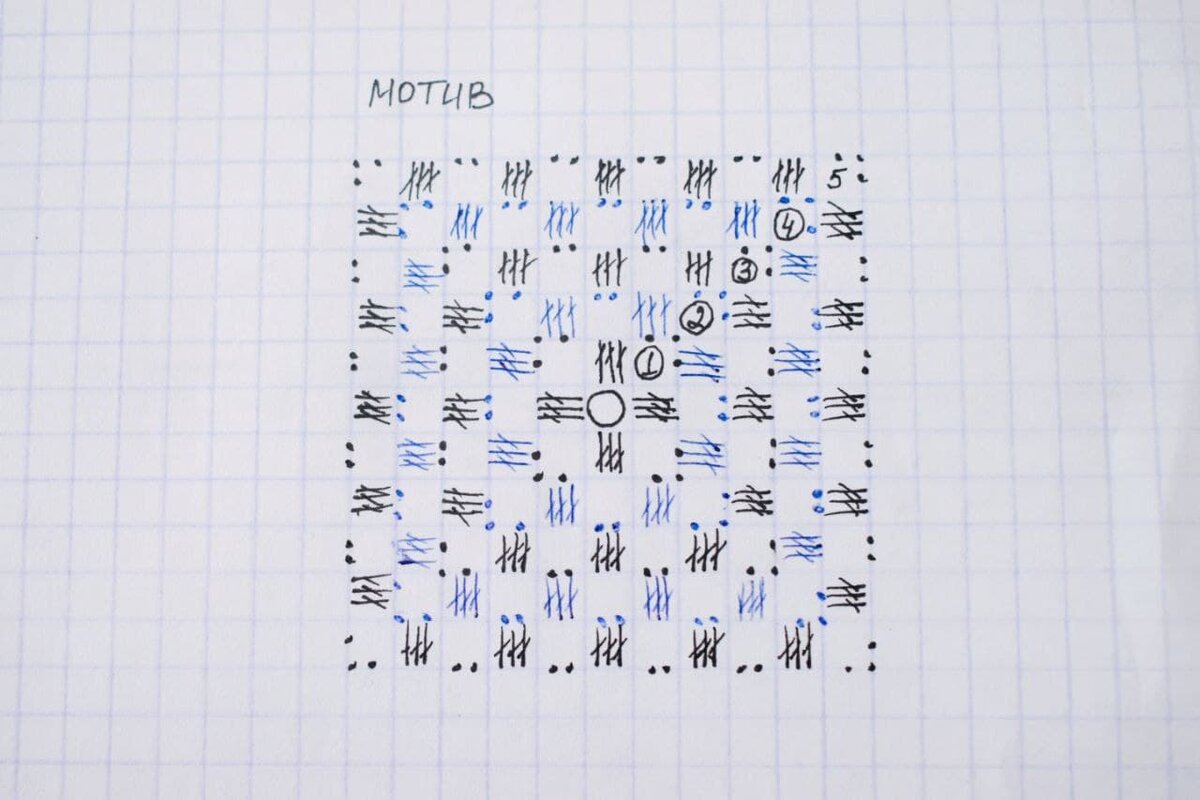 МОТИВ
5
4
3
2
1